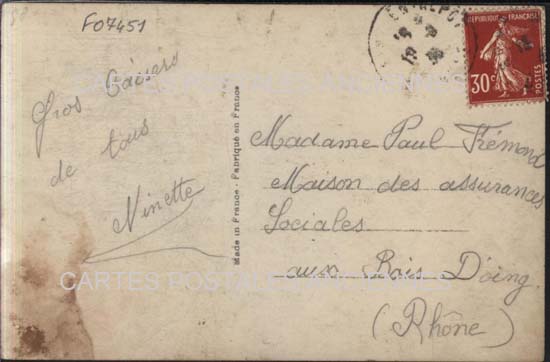 F07451
Gros baisers
de tous
Ninette
Made in France - Fabriqué en France
REPUBLIQUE FRANÇAISE
30c
POSTES
Madame Paul Frémond
Maison des assurances
Sociales
aux Bois D'oing
(Rhône)
CARTES POSTALES ANCIENNES
CARTES POSTALES ANCIENNES